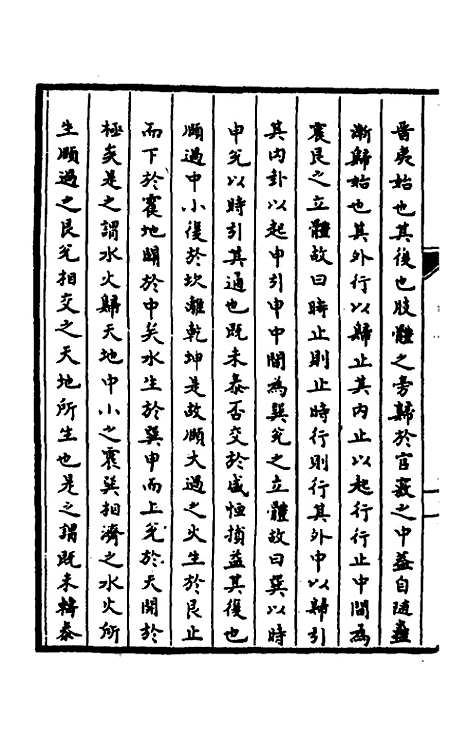 晉夷始也其後也肢體之旁歸於官竅之中蓋自隨蠱
漸歸始也其外行以歸止其内止以起行行止中間為
震艮之立體故曰時止則止時行則行其外申以歸引
其内卦以起申引申中間為巽兊之立體故曰巽以時
申兊以時引其通也既未泰否交於咸恒損益其復也
頤過中小復於坎離乾坤是故頤大過之火生於艮止
而下於震地關於申矣水生於巽申而上兊於天開於
極矣是之謂水火歸天地中小之震巽相濟之水火所
生頤過之艮兊相交之天地所生也是之謂既未轉泰